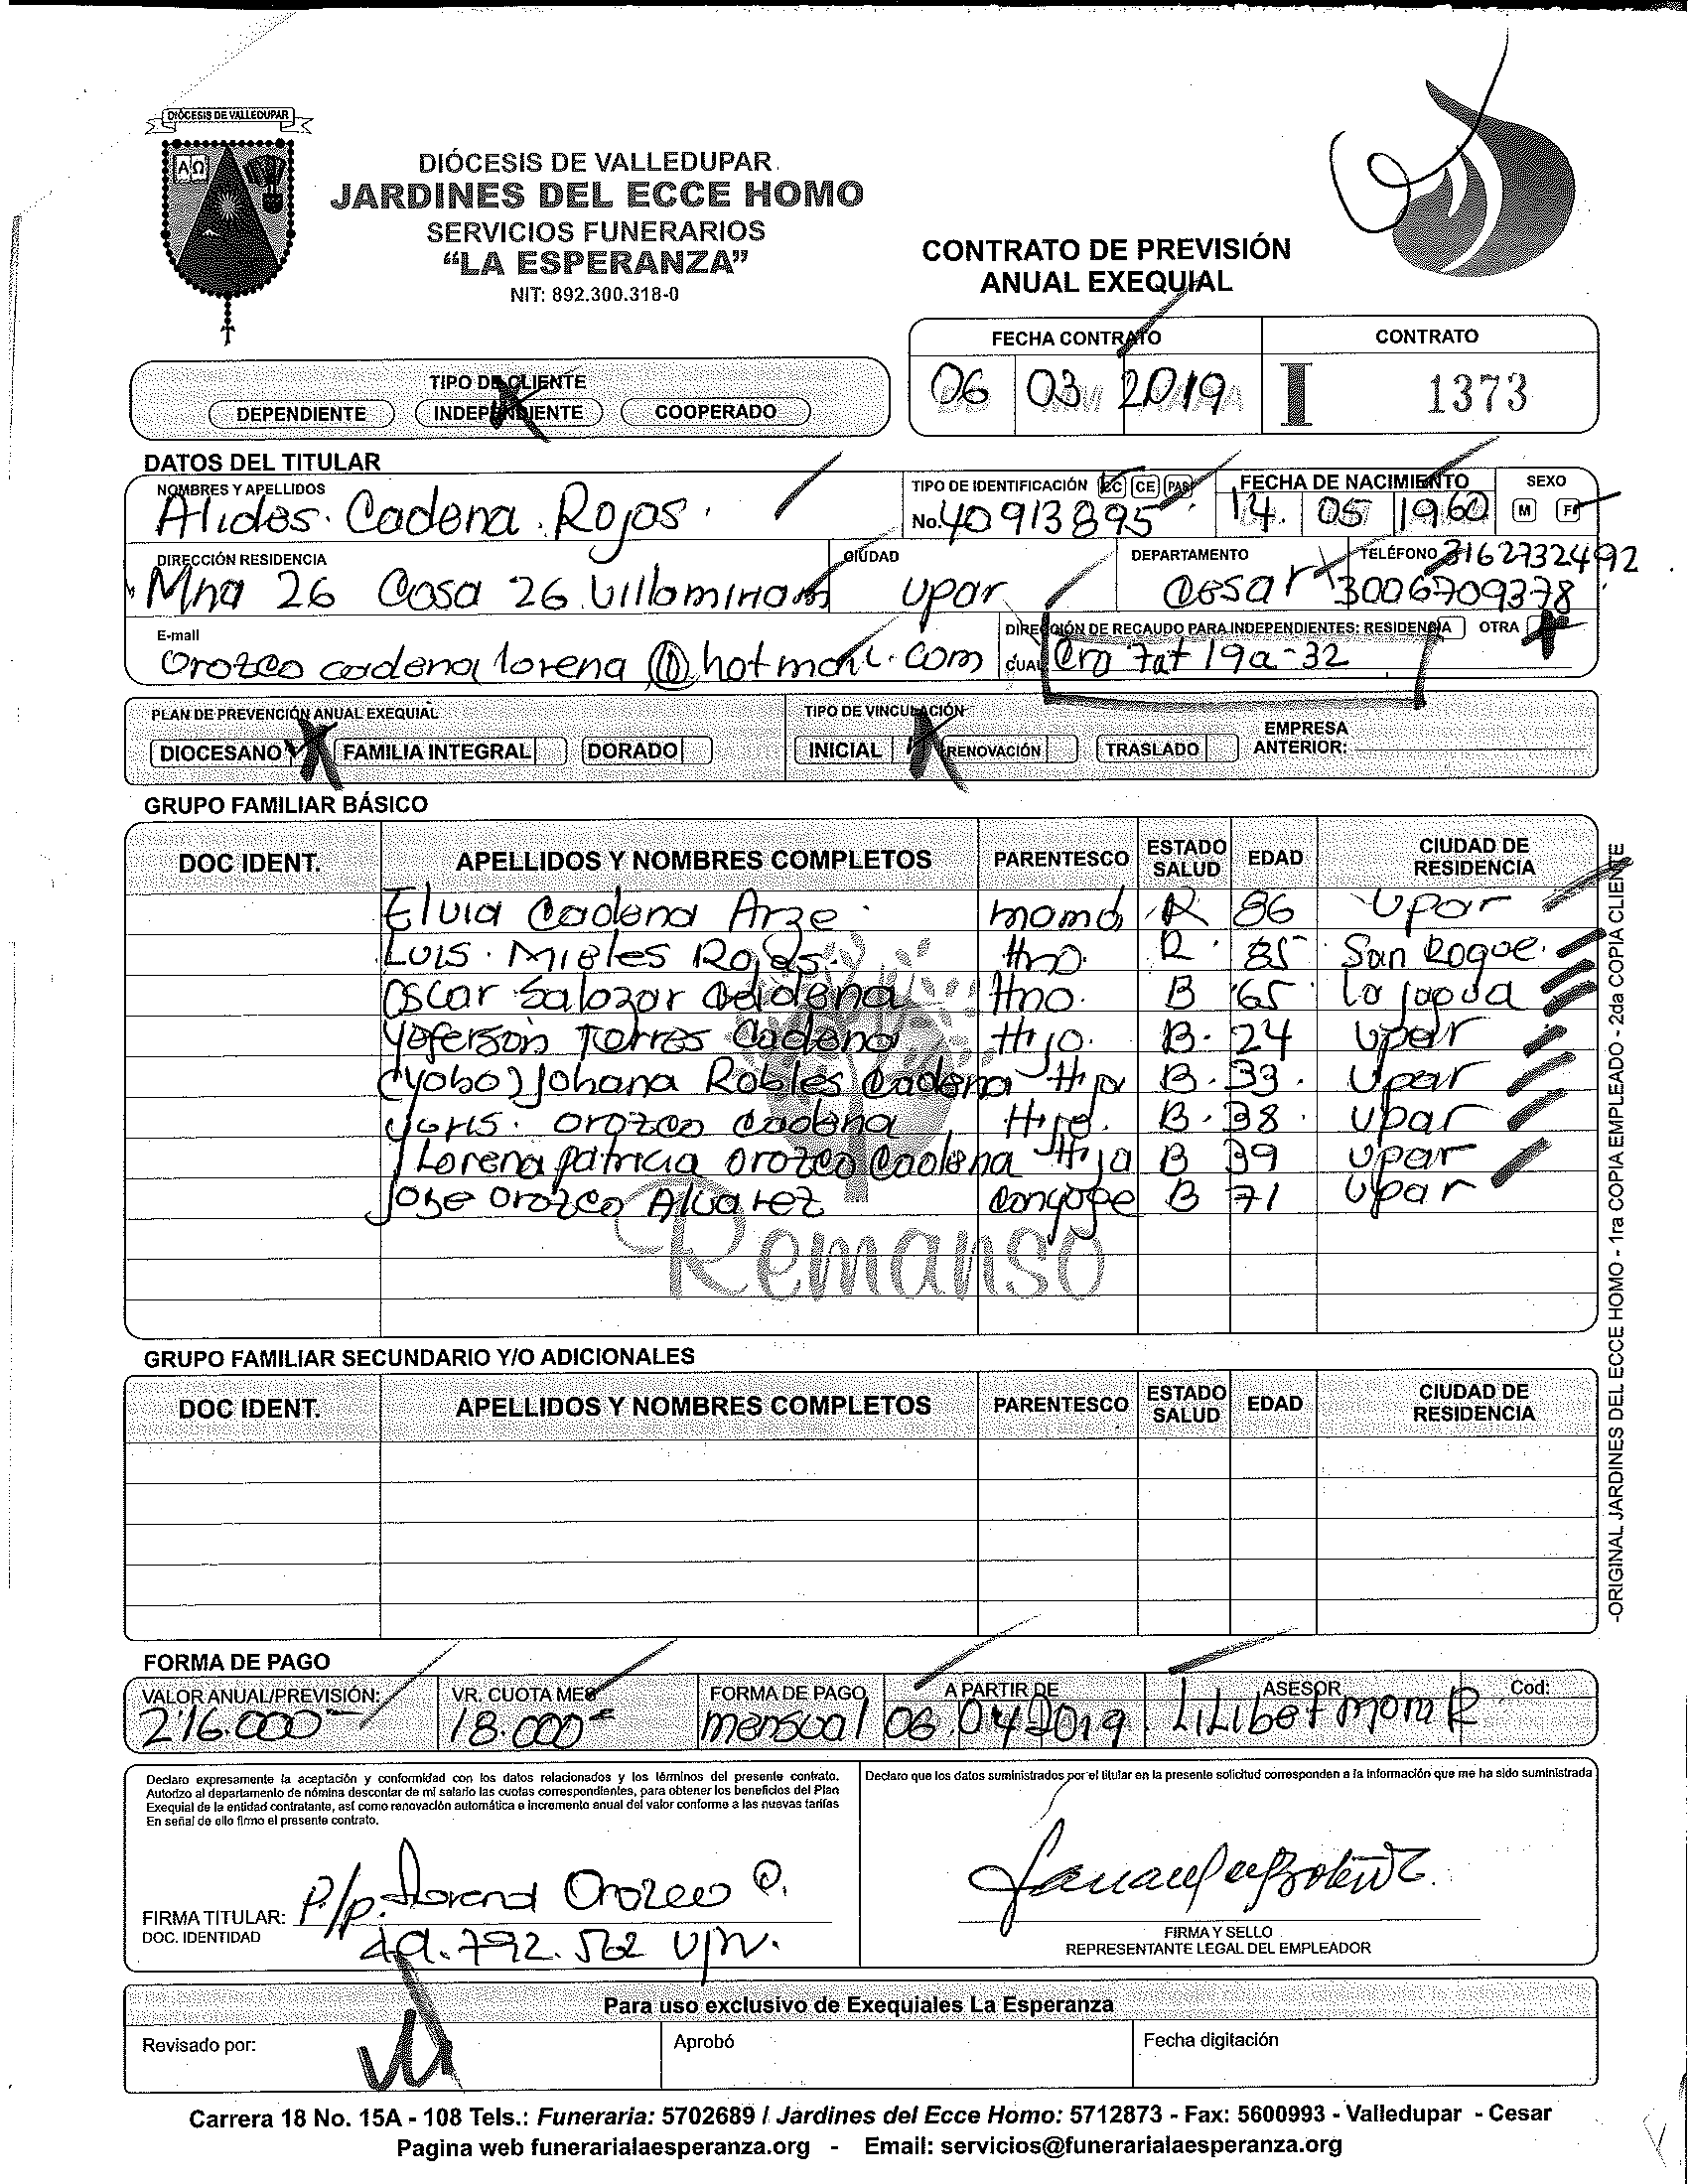 DIÓCESIS DE VALLEDUPAR
ΑΩ
DIÓCESIS DE VALLEDUPAR
JARDINES DEL ECCE HOMO
SERVICIOS FUNERARIOS
"LA ESPERANZA"
NIT: 892.300.318-0
CONTRATO DE PREVISIÓN
ANUAL EXEQUIAL
FECHA CONTRATO CONTRATO
06 03 2019 I 1373
TIPO DE CLIENTE
DEPENDIENTE INDEPENDIENTE COOPERADO
DATOS DEL TITULAR
NOMBRES Y APELLIDOS TIPO DE IDENTIFICACIÓN CC CE PAS FECHA DE NACIMIENTO SEXO
Alides Cadena Rojas No. 40913895 14 05 1960 M F
DIRECCIÓN RESIDENCIA CIUDAD DEPARTAMENTO TELÉFONO 3162732492
Mna 26 Casa 26 Upar Cesar 3006709378
E-mail DIRECCIÓN DE RECAUDO PARA INDEPENDIENTES: RESIDENCIA OTRA
Orozco cadena lorena @hotmail.com CUAL Cra 7at 19a-32
PLAN DE PREVENCIÓN ANUAL EXEQUIAL TIPO DE VINCULACIÓN
DIOCESANO FAMILIA INTEGRAL DORADO INICIAL RENOVACIÓN TRASLADO EMPRESA ANTERIOR:
GRUPO FAMILIAR BÁSICO
DOC IDENT. APELLIDOS Y NOMBRES COMPLETOS PARENTESCO ESTADO SALUD EDAD CIUDAD DE RESIDENCIA
Elvia Cadena Arze mamá R 86 Upar
Luis Mieles Rojas Hno. R 85 San Roque
Oscar Salazar Cadena Hno. B 65 La Jagua
Yeferson Torres Cadena Hijo. B. 24 Upar
(Yobo) Johana Robles Cadena Hija B. 33. Upar
Yoris. Orozco Cadena Hija. B. 38 Upar
Lorena patricia Orozco Cadena Hija B 39 Upar
Jose Orozco Alvarez Conyuge B 71 Upar
Remanso
GRUPO FAMILIAR SECUNDARIO Y/O ADICIONALES
DOC IDENT. APELLIDOS Y NOMBRES COMPLETOS PARENTESCO ESTADO SALUD EDAD CIUDAD DE RESIDENCIA
-ORIGINAL JARDINES DEL ECCE HOMO - 1ra COPIA EMPLEADO - 2da COPIA CLIENTE
FORMA DE PAGO
VALOR ANUAL/PREVISIÓN: VR. CUOTA MES FORMA DE PAGO A PARTIR DE ASESOR Cod:
216.000 18.000 mensual 06 04 2019 Lilibet Mora R
Declaro expresamente la aceptación y conformidad con los datos relacionados y los términos del presente contrato.
Autorizo al departamento de nómina descontar de mi salario las cuotas correspondientes, para obtener los beneficios del Plan
Exequial de la entidad contratante, así como renovación automática e incremento anual del valor conforme a las nuevas tarifas
En señal de ello firmo el presente contrato.
Declaro que los datos suministrados por el titular en la presente solicitud corresponden a la información que me ha sido suministrada
FIRMA TITULAR: P/p. Lorena Orozco C.
DOC. IDENTIDAD 49.792.562 Upar.
FIRMA Y SELLO
REPRESENTANTE LEGAL DEL EMPLEADOR
Para uso exclusivo de Exequiales La Esperanza
Revisado por: Aprobó Fecha digitación
Carrera 18 No. 15A - 108 Tels.: Funeraria: 5702689 / Jardines del Ecce Homo: 5712873 - Fax: 5600993 - Valledupar - Cesar
Pagina web funerarialaesperanza.org - Email: servicios@funerarialaesperanza.org